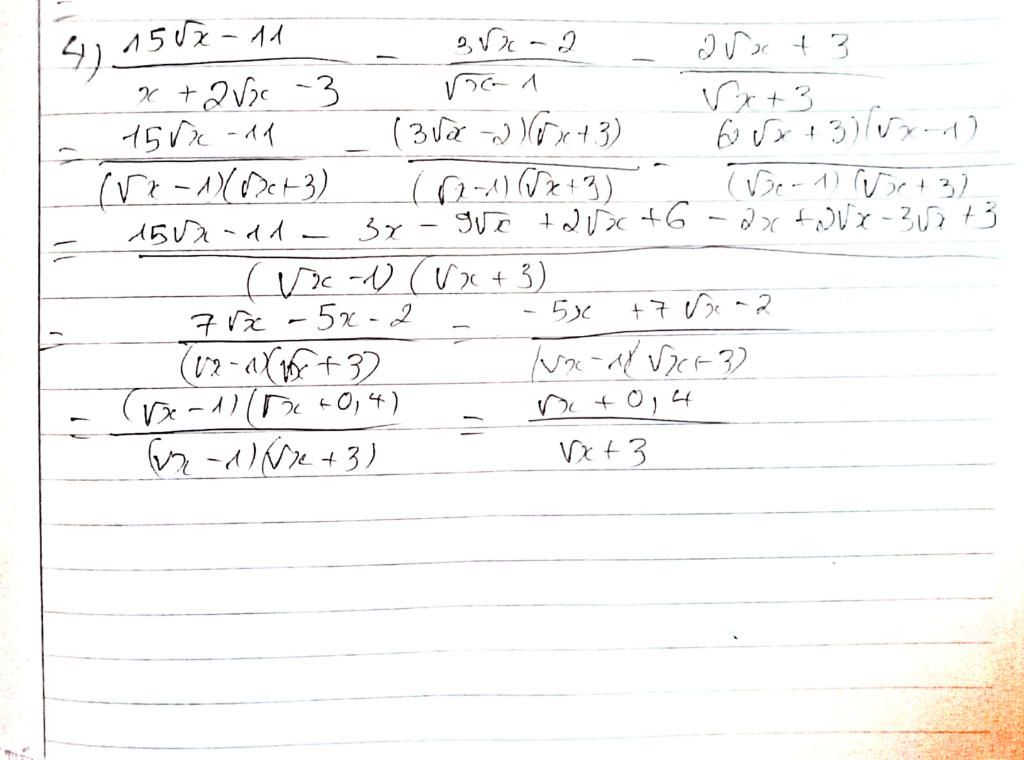 4) (15√x − 11)/(x + 2√x − 3) − (3√x − 2)/(√x − 1) − (2√x + 3)/(√x + 3)
= (15√x − 11)/((√x − 1)(√x + 3)) − ((3√x − 2)(√x + 3))/((√x − 1)(√x + 3)) − ((2√x + 3)(√x − 1))/((√x − 1)(√x + 3))
= (15√x − 11 − 3x − 9√x + 2√x + 6 − 2x + 2√x − 3√x + 3)/((√x − 1)(√x + 3))
= (7√x − 5x − 2)/((√x − 1)(√x + 3)) = (−5x + 7√x − 2)/((√x − 1)(√x + 3))
= ((√x − 1)(√x + 0,4))/((√x − 1)(√x + 3)) = (√x + 0,4)/(√x + 3)